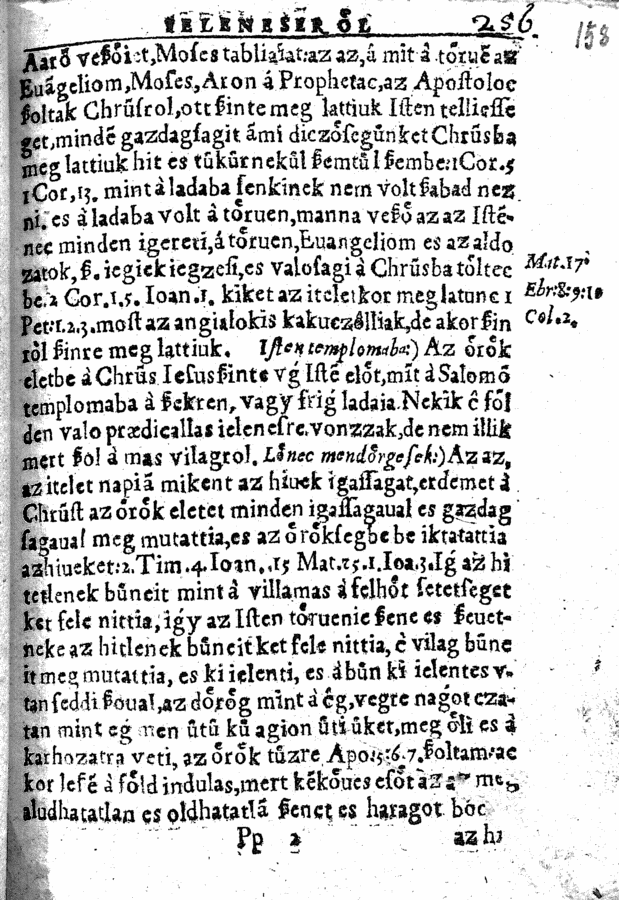 IELENESEKRŐL 256. 158
Aarō veßőiet, Moses tabliaiat: az az, á mit à tőruē az
Euāgeliom, Moses, Aron á Prophetac, az Apoſtoloc
ßoltak Chrûſrol, ott ßinte meg lattiuk Iſten tellieſſe
get, mindē gazdagſagit āmi diczőſegûnket Chrûſba
meg lattiuk hit es tûkûr nekûl ßemtûl ßembe: 1 Cor. 5
1 Cor, 13. mint à ladaba ſenkinek nem volt ßabad nez
ni. es à ladaba volt à tőruen, manna veßő az az Iſtē-
nec minden igereti, á tőruen, Euangeliom es az aldo
zatok, ß. iegiek iegzeſi, es valoſagi à Chrûſba tőltec
be. 2 Cor. 1. 5. Ioan. 1. kiket az itelet kor meg latunc 1
Pet: 1. 2. 3. moſt az angialokis kakuczålliak, de akor ßin
ről ßinre meg lattiuk. Iſten templomaba:) Az őrők
eletbe à Chrûs Ieſus ßinte vǵ Iſtē előt, mīt à Salomō
templomaba à ßekren, vagy frig ladaia. Nekik ē főľ
den valo prædicallas ielenesre. vonzzak, de nem illik
mert ßol à mas vilagrol. Lőnec mendőrgeſek:) Az az,
az itelet napiā mikent az hiuek igaſſagat, erdemet à
Chrûſt az őrők eletet minden igaſſagaual es gazdag
ſagaual meg mutattia, es az őrőkſegbe be iktatattia
az hiueket: 2. Tim. 4. Ioan. 15 Mat. 25. 1. Ioa. 3. Iǵ az hi
tetlenek bûneit mint à villamas à felhőt ſetetſeget
ket fele nittia, iǵy az Iſten tőruenie ßene es ßeuet-
neke az hitlenek bûneit ket fele nittia, ē vilag bûne
it meg mutattia, es ki ielenti, es à bûn ki ielentes v-
tan ſeddi ßoual, az dőrőg mint à ēg, vegre nagőt cza-
tan mint eg men ûtû kû agion ûti ûket, meg őli es à
karhozatra veti, az őrők tûzre Apo: 5: 6. 7. ßoltam: ac
kor leſē à főld indulas, mert kēkőues eſőt àz meg
aludhatatlan es oldhatatlā ßenet es haragot boc
Pp 2 az hi
Mat. 17
Ebr: 8: 9: 10
Col. 2.